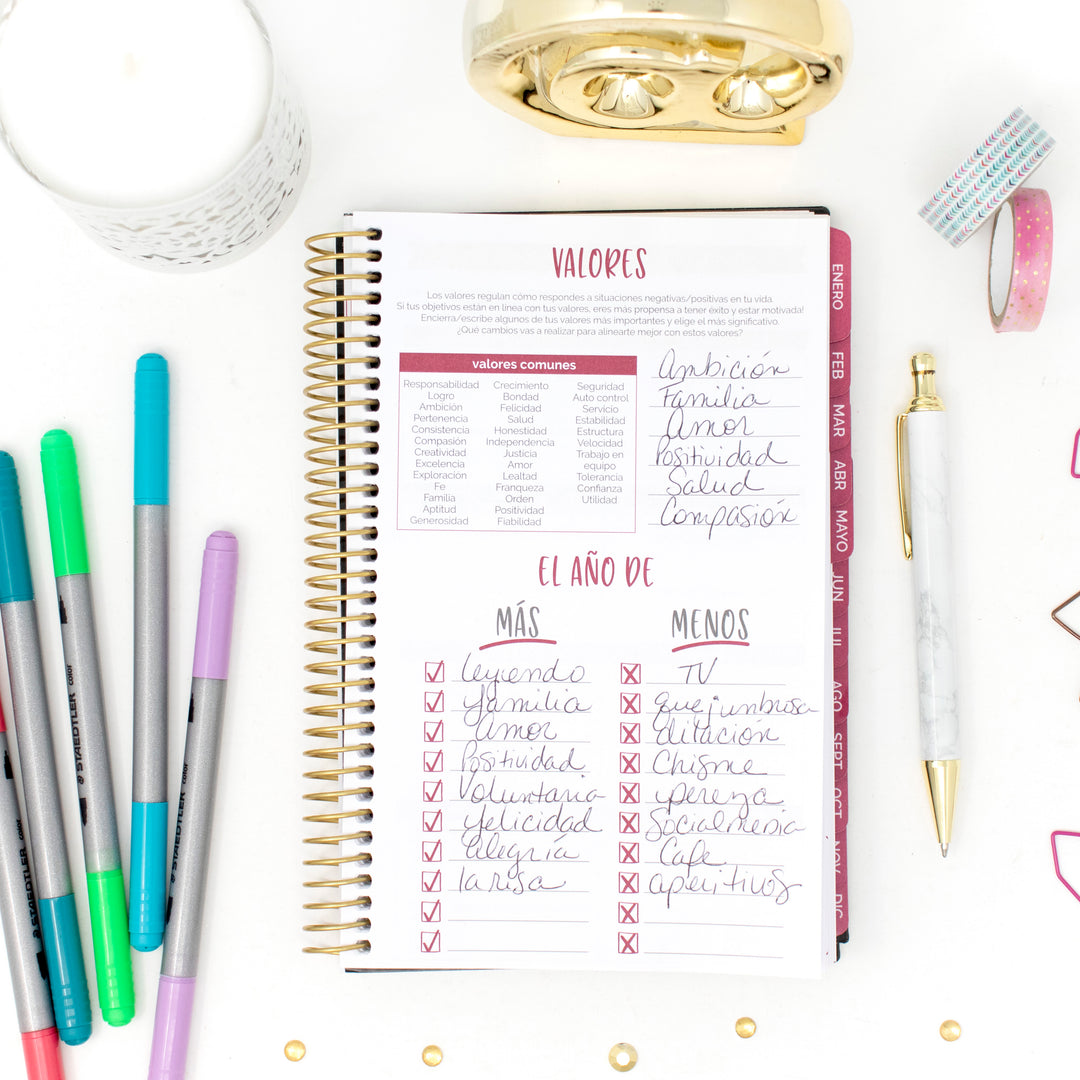 VALORES
Los valores regulan cómo respondes a situaciones negativas/positivas en tu vida
Si tus objetivos están en línea con tus valores, eres más propensa a tener éxito y estar motivada!
Encierra/escribe algunos de tus valores más importantes y elige el más significativo.
¿Qué cambios vas a realizar para alinearte mejor con estos valores?
valores comunes
Responsabilidad
Logro
Ambición
Pertenencia
Consistencia
Compasión
Creatividad
Excelencia
Exploración
Fe
Familia
Aptitud
Generosidad
Crecimiento
Bondad
Felicidad
Salud
Honestidad
Independencia
Justicia
Amor
Lealtad
Franqueza
Orden
Positividad
Fiabilidad
Seguridad
Auto control
Servicio
Estabilidad
Estructura
Velocidad
Trabajo en
equipo
Tolerancia
Confianza
Utilidad
Ambición
Familia
Amor
Positividad
Salud
Compasión
EL AÑO DE
MÁS
leyendo
familia
Amor
Positividad
Voluntaria
felicidad
alegría
la risa
MENOS
TV
quejumbrosa
dilación
Chisme
pereza
Social media
Cafe
aperitivos
ENERO
FEB
MAR
ABR
MAYO
JUN
JUL
AGO
SEPT
OCT
NOV
DIC
STAEDTLER color
STAEDTLER color